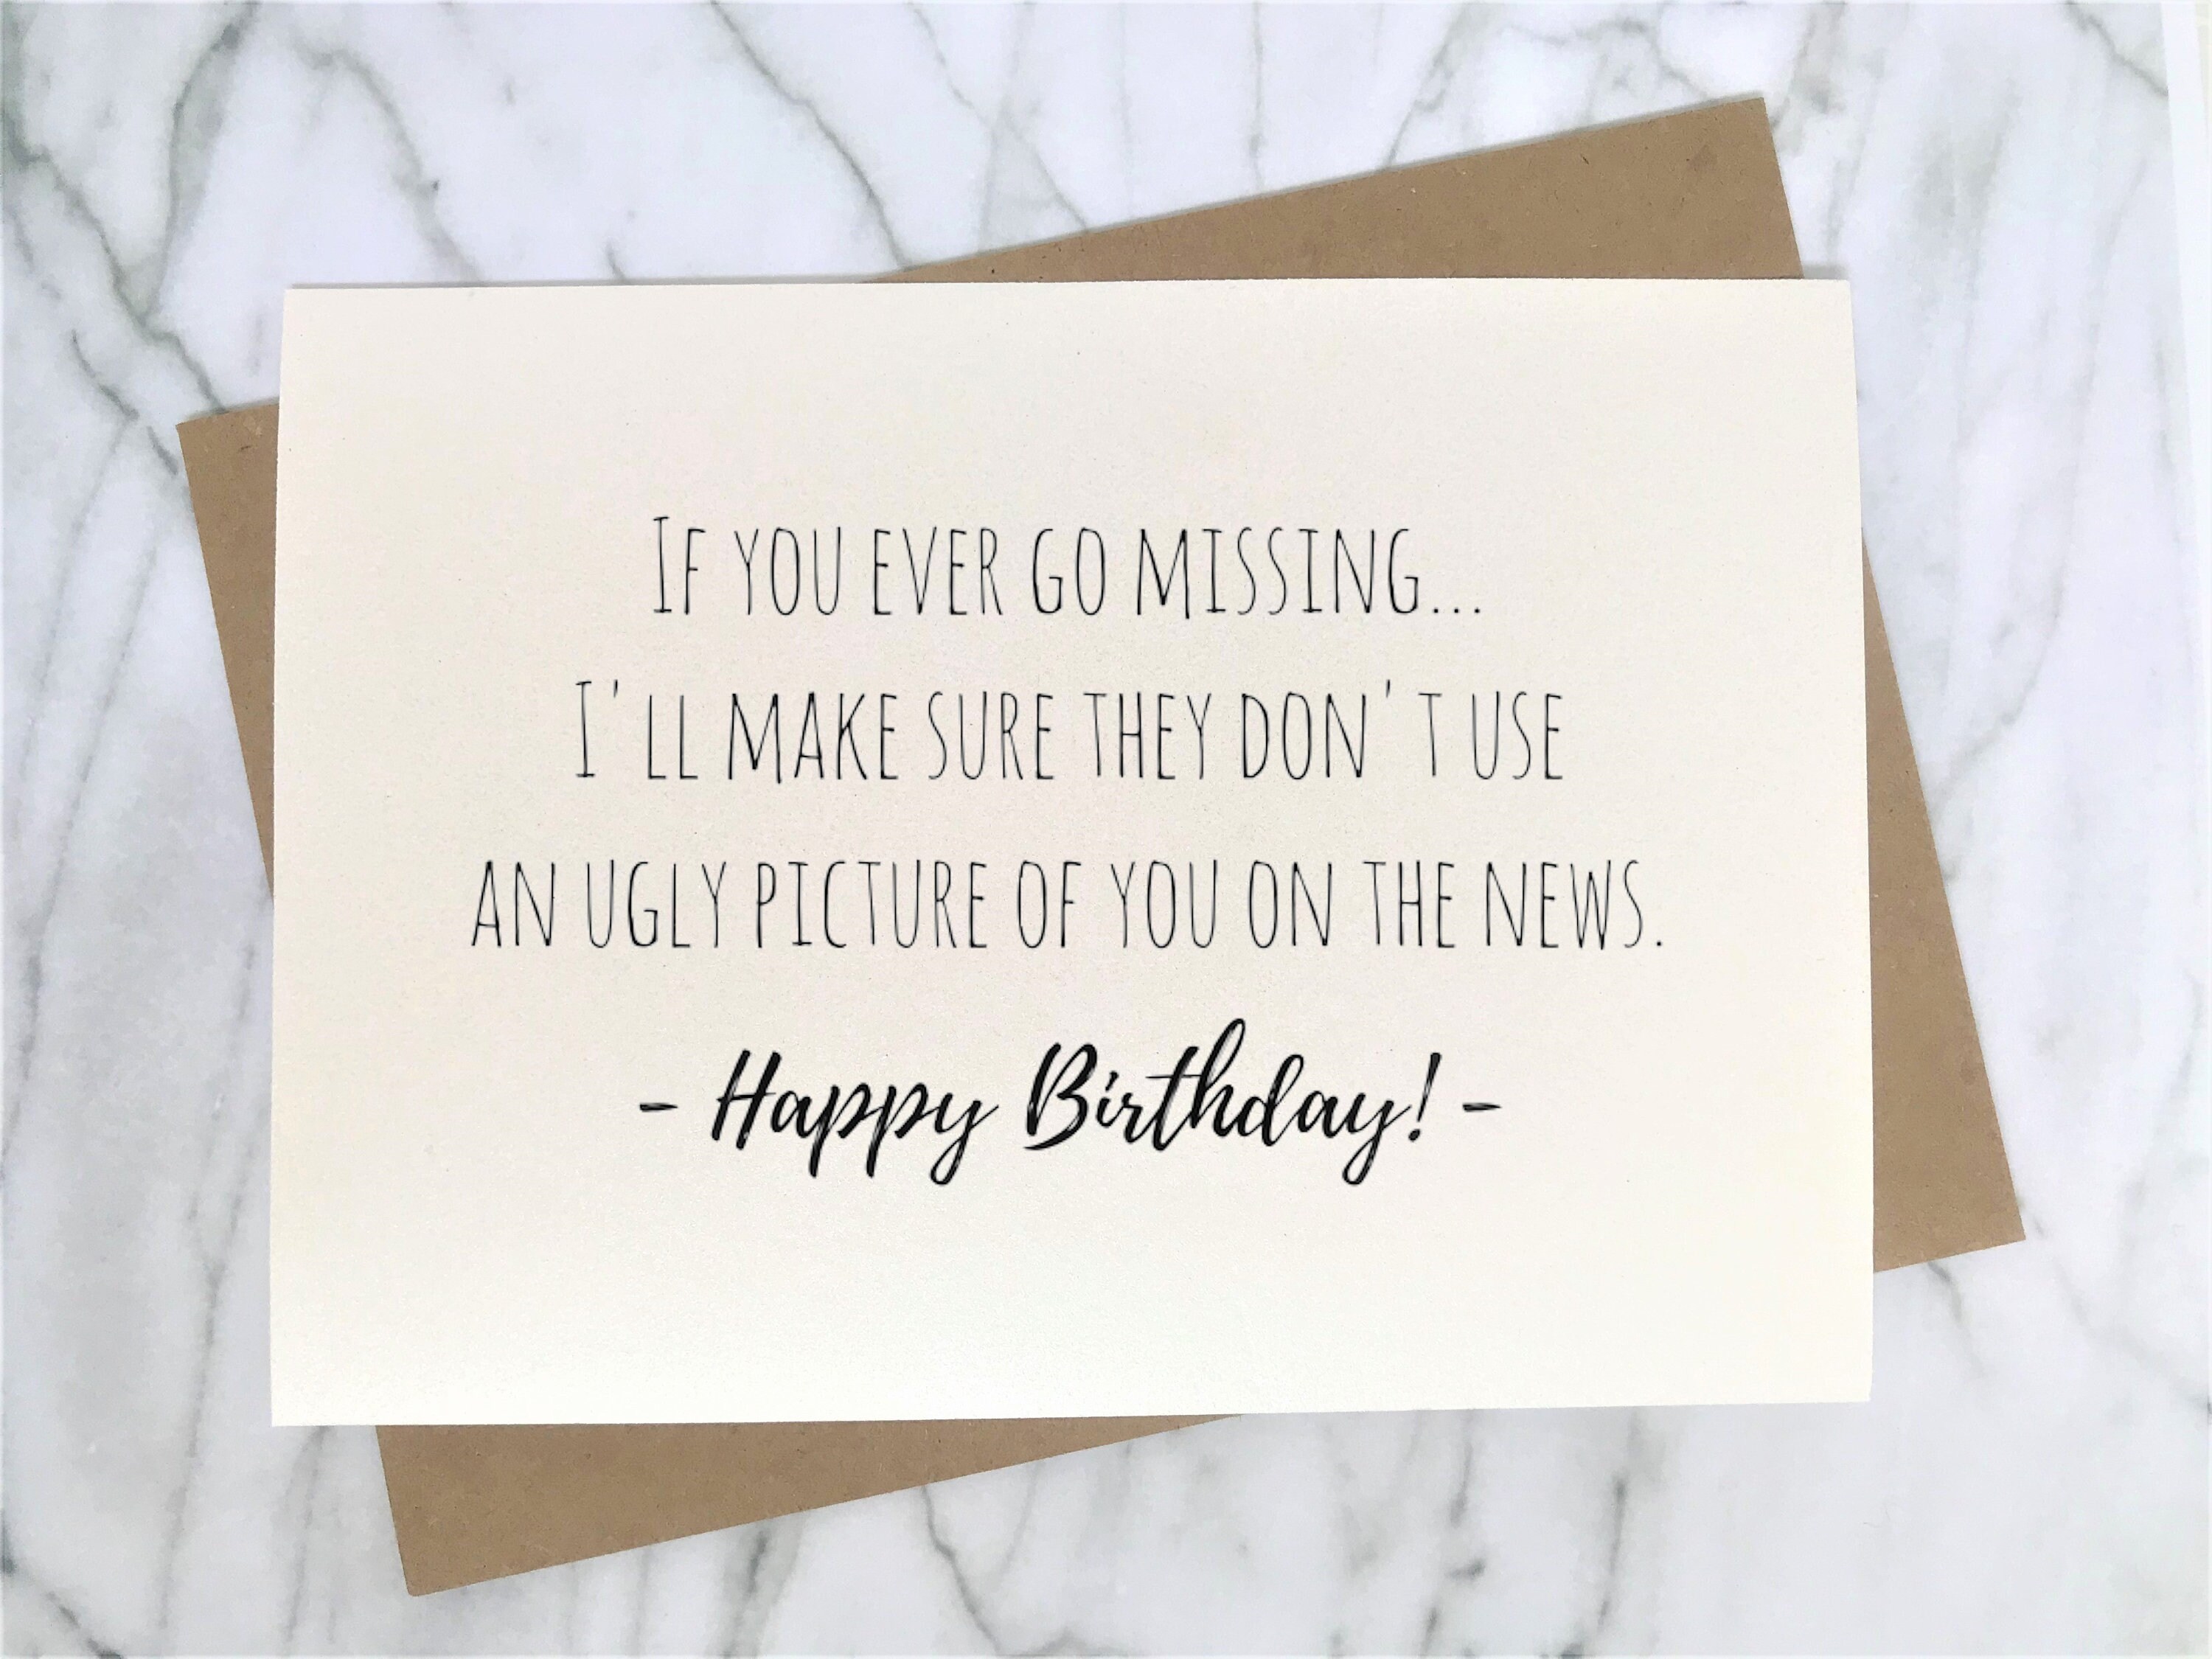 If you ever go missing...
I'll make sure they don't use
an ugly picture of you on the news.
- Happy Birthday! -